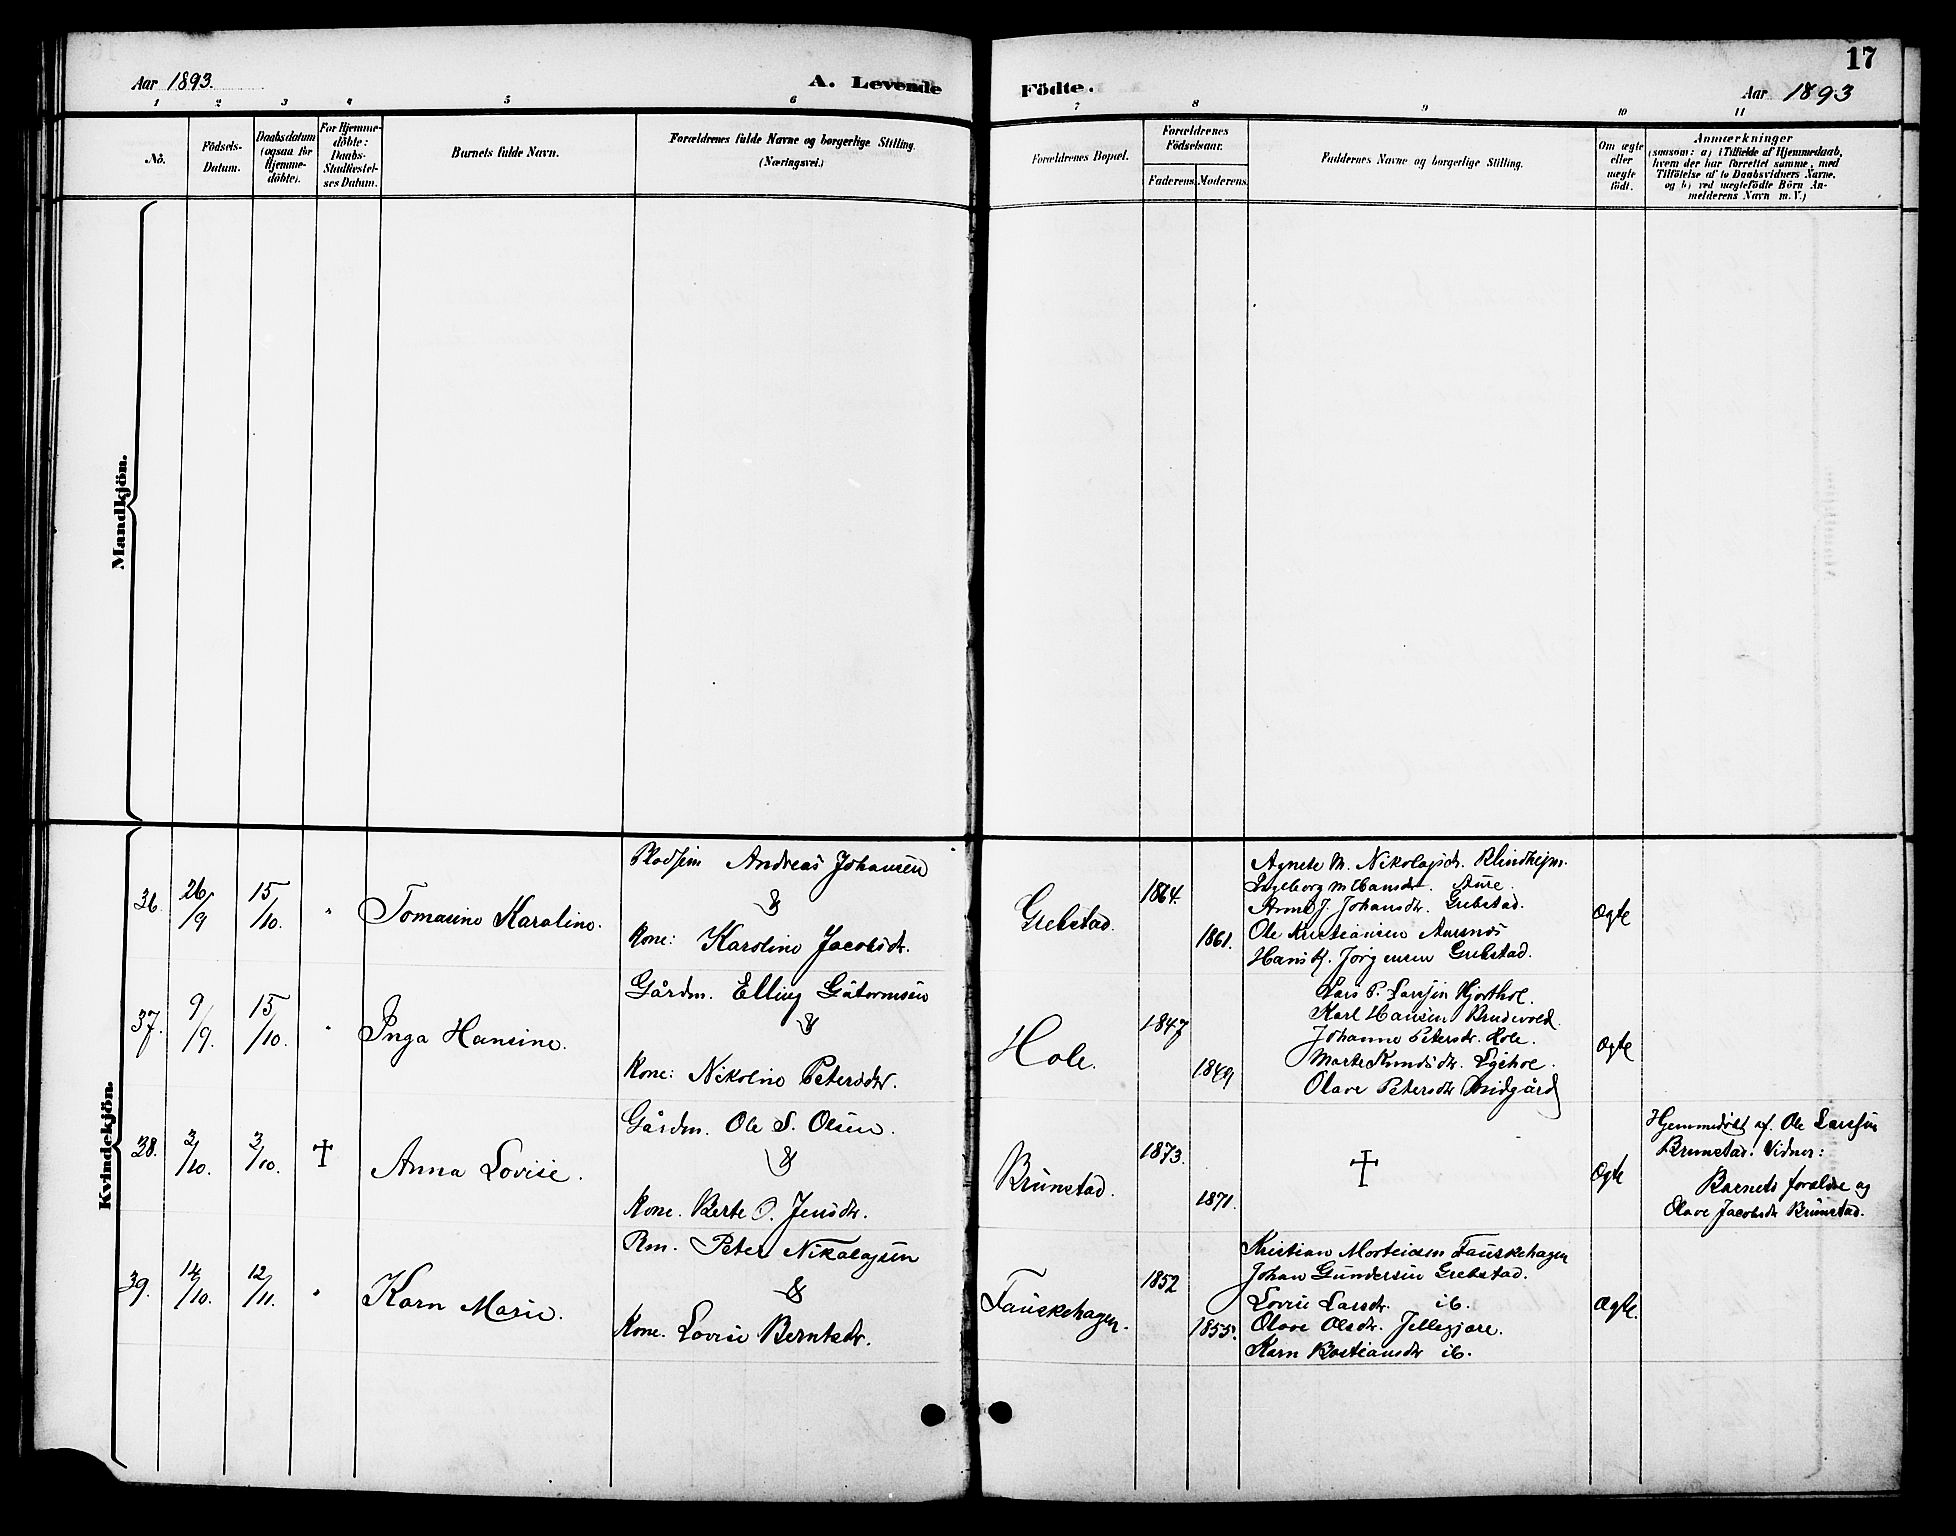 Aar 1893.
A. Levende
Födte.
Aar 1893
17
1 2 3 4 5 6 7 8 9 10 11
No.
Födsels-
Datum.
Daabsdatum
(ogsaa for
Hjemme-
döbte).
For Hjemme-
döbte:
Daabs-
Stadfæstel-
ses Datum.
Barnets fulde Navn.
Forældrenes fulde Navne og borgerlige Stilling.
(Næringsvei.)
Forældrenes Bopæl.
Forældrenes
Födselsaar.
Faderens. Moderens.
Faddernes Navne og borgerlige Stilling.
Om ægte
eller
uægte
födt.
Anmærkninger
(saasom: a) i Tilfælde af Hjemmedaab,
hvem der har forrettet samme, med
Tilföielse af to Daabsvidners Navne,
og b) ved uægtefödte Börn An-
melderens Navn m. V.)
Mandkjön.
Kvindekjön.
36. 26/9 15/10. "
Tomasine Karoline.
Pladsm Andreas Johansen
&
Kone: Karoline Jacobsdr.
Grebstad.
1864.
1861.
Agnete M. Nikolajsdr. Klindhejm.
Ingeborg M Hansdr. Aure.
Anne J. Johansdr. Grebstad.
Ole Kristiansen Aursnes
Hans K. Jörgensen Grebstad.
Ægte
37. 9/9. 15/10. "
Inga Hansine.
Gårdm. Elling Guttormsen
&
Kone: Nikoline Petersdr.
Hole.
1847
1849
Lars P. Larsen Hjorthol.
Karl Hansen Brudevold.
Johanne Petersdr. Hole.
Marte Knudsdr. Lyshol.
Olave Petersdr Midgård
Ægte
38. 3/10. 3/10. †
Anna Lovise.
Gårdm. Ole S. Olsen.
&
Kone. Berte O. Jensdr.
Brunstad.
1873.
1871.
†
Ægte
Hjemmedöbt af. Ole Larssen
Brunstad. Vidner:
Barnets forældre og
Olave Jacobsdr Brunstad.
39. 14/10. 12/11. "
Karn Marie.
Rm. Peter Nikolajsen
&
Kone. Lovise Berntsdr.
Fauskehagen.
1852
1855.
Kristian Mortensen Fauskehagen
Johan Gundersen Grebstad.
Lovise Larsdr. ib.
Olave Olsdr. Jellegjære.
Karn Bastiansdr ib.
Ægte.